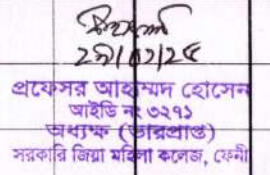 ২৯/০৭/২৫
প্রফেসর আহাম্মদ হোসেন
আইডি নং ৩২৭১
অধ্যক্ষ (ভারপ্রাপ্ত)
সরকারি জিয়া মহিলা কলেজ, ফেনী